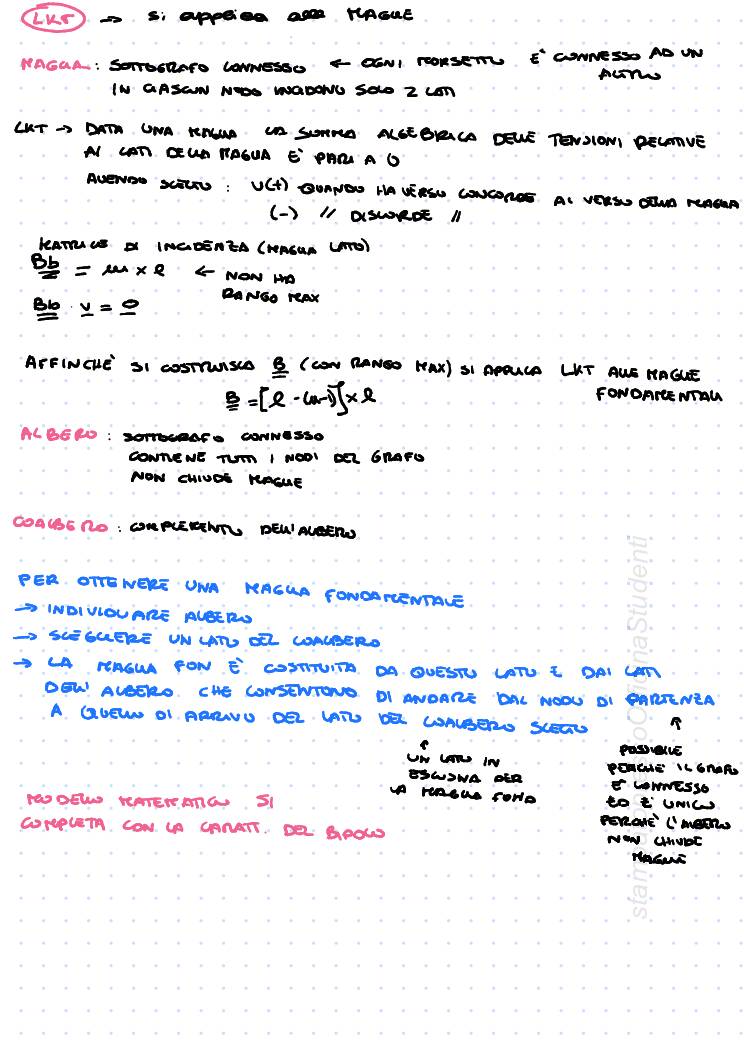 LKT → si applica alle MAGLIE
MAGLIA : SOTTOGRAFO CONNESSO ← OGNI MORSETTO E' CONNESSO AD UN ALTRO
IN CIASCUN NODO INCIDONO SOLO 2 LATI
LKT → DATA UNA MAGLIA LA SOMMA ALGEBRICA DELLE TENSIONI RELATIVE
AI LATI DELLA MAGLIA E' PARI A 0
AVENDO SCELTO : V(+) QUANDO HA VERSO CONCORDE AL VERSO DELLA MAGLIA
(-) // DISCORDE //
MATRICE DI INCIDENZA (MAGLIA LATO)
Bb = m x l ← NON HA
RANGO MAX
Bb · v = 0
AFFINCHE' SI COSTRUISCA B (CON RANGO MAX) SI APPLICA LKT ALLE MAGLIE
FONDAMENTALI
B = [l - (n-1)] x l
ALBERO : SOTTOGRAFO CONNESSO
CONTIENE TUTTI I NODI DEL GRAFO
NON CHIUDE MAGLIE
COALBERO : COMPLEMENTO DELL'ALBERO
PER OTTENERE UNA MAGLIA FONDAMENTALE
→ INDIVIDUARE ALBERO
→ SCEGLIERE UN LATO DEL COALBERO
→ LA MAGLIA FON E' COSTITUITA DA QUESTO LATO E DAI LATI
DELL'ALBERO CHE CONSENTONO DI ANDARE DAL NODO DI PARTENZA
A QUELLO DI ARRIVO DEL LATO DEL COALBERO SCELTO
↑
UN LATO IN
ESCLUSIVA PER
LA MAGLIA FOND
↑
POSSIBILE
PERCHE' IL GRAFO
E' CONNESSO
ED E' UNICO
PERCHE' L'ALBERO
NON CHIUDE
MAGLIE
MODELLO MATEMATICO SI
COMPLETA CON LA CARATT. DEL BIPOLO